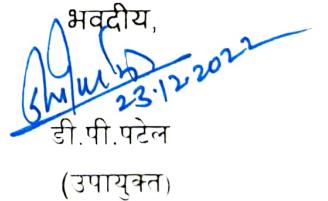 भवदीय,
23.12.2022
डी.पी.पटेल
(उपायुक्त)